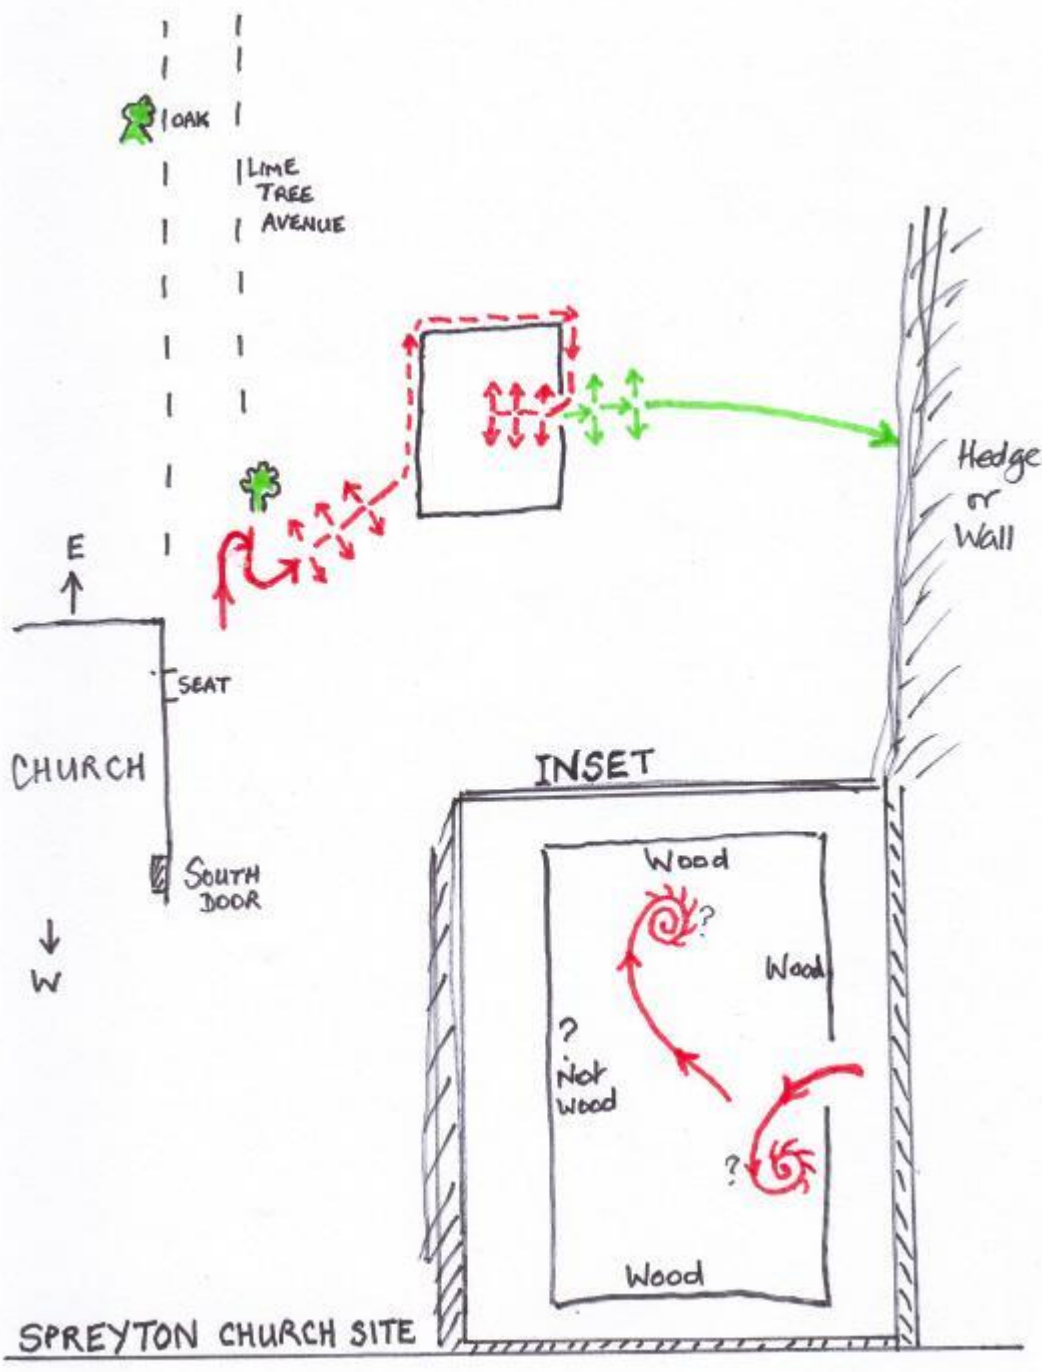 OAK
LIME
TREE
AVENUE
Hedge
or
Wall
E
SEAT
CHURCH
SOUTH
DOOR
W
INSET
Wood
?
Wood
?
Not
Wood
?
Wood
SPREYTON CHURCH SITE